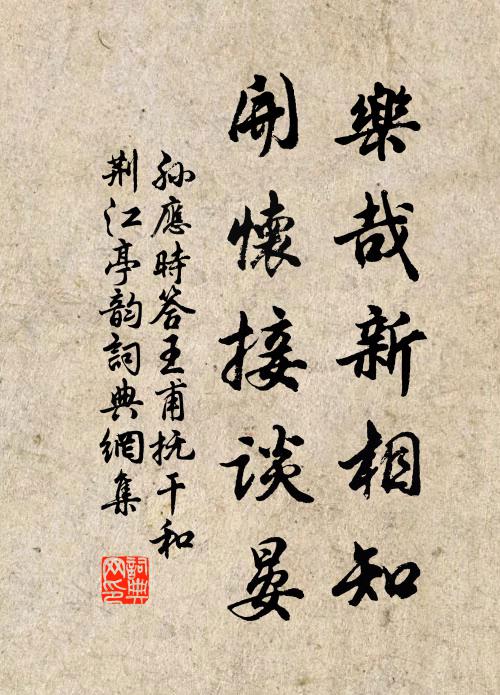 樂哉新相知
開懷接談晏
孫應時答王甫抚干和
荆江亭韵詞典網集
詞典網印